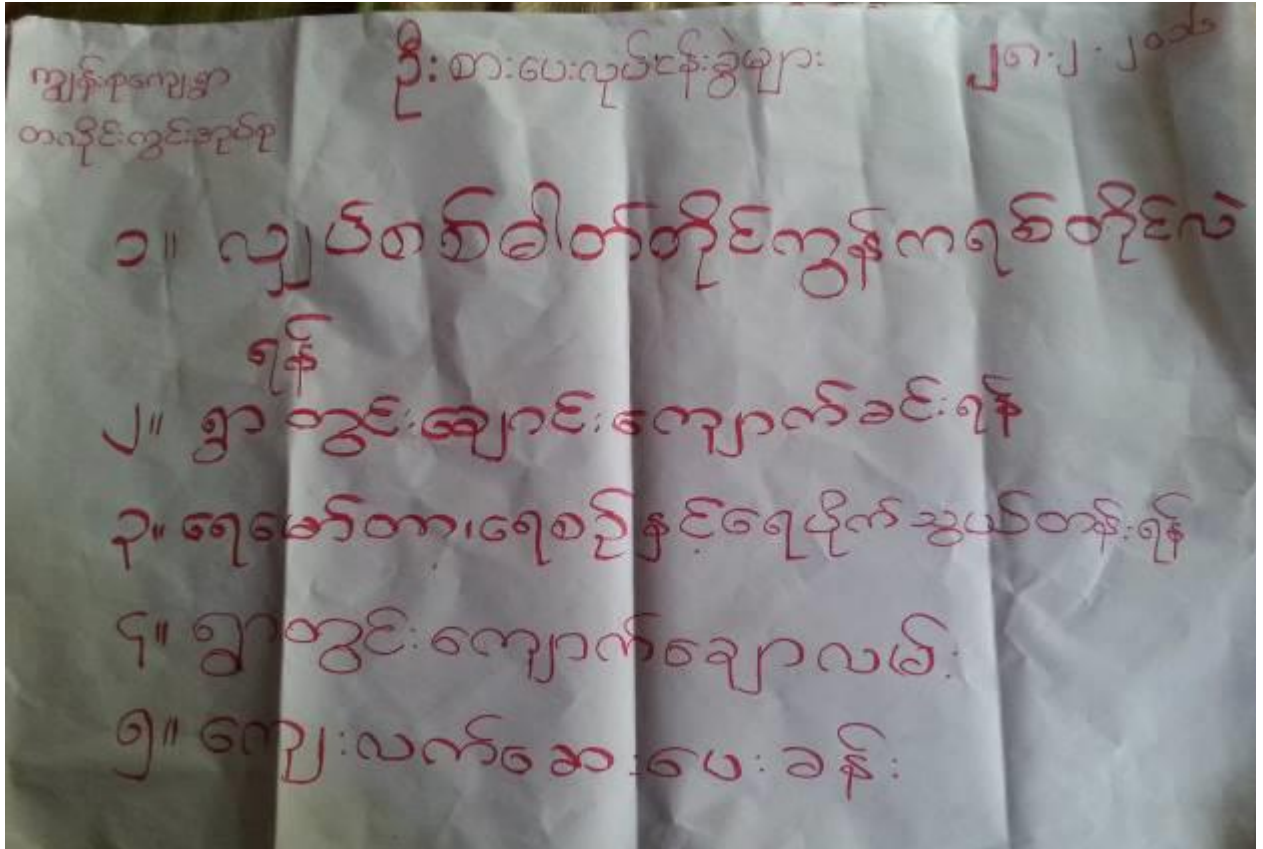 ကျွန်းစုကျေးရွာ
တလိုင်းကွင်းအုပ်စု
ဦးစားပေးလုပ်ငန်းခွဲများ
၂၈.၂.၂၀၁၆
၁။ လျှပ်စစ်ဓါတ်တိုင်ကွန်ကရစ်တိုင်လဲ
ရန်
၂။ ရွာတွင်းချောင်းကျောက်ခင်းရန်
၃။ ရေမော်တာ၊ရေစဉ်နှင့်ရေပိုက်သွယ်တန်းရန်
၄။ ရွာတွင်းကျောက်ချောလမ်း
၅။ ကျေးလက်ဆေးပေးခန်း